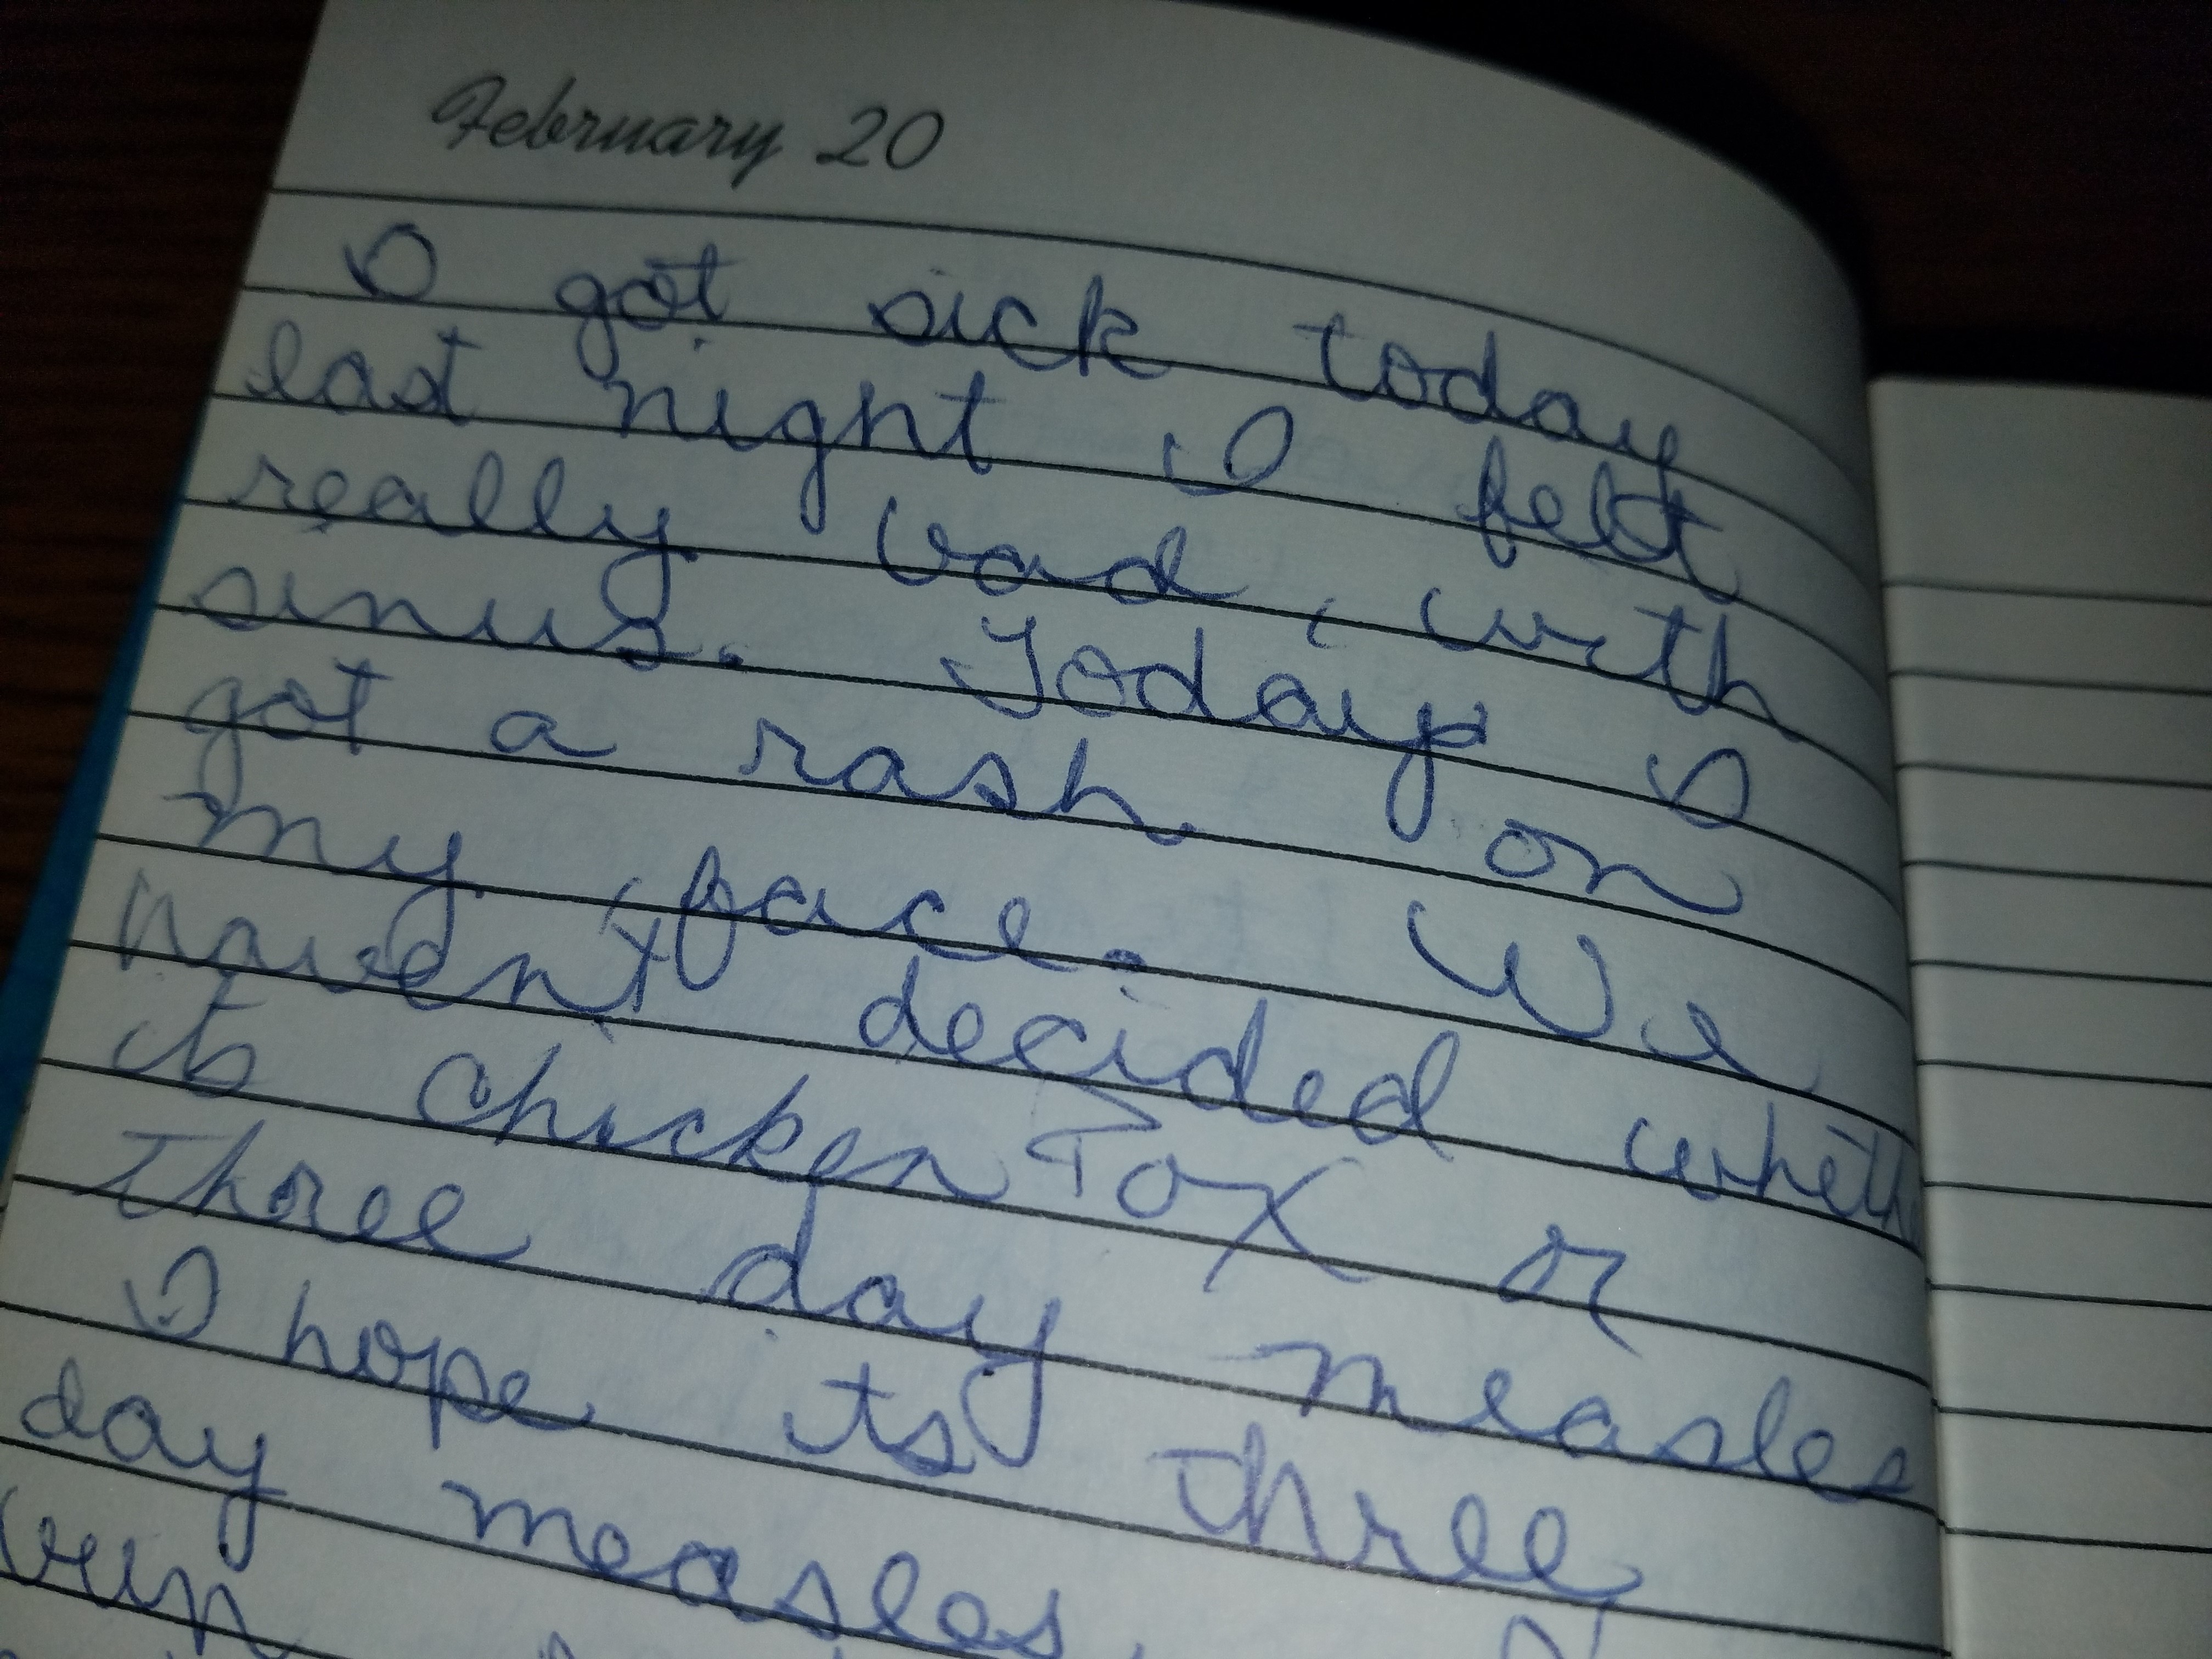 February 20
I got sick today
last night I felt
really bad with
sinus. Today I
got a rash on
my face. We
haven't decided wheth
its chicken Pox or
three day measles
I hope its three
day measles.